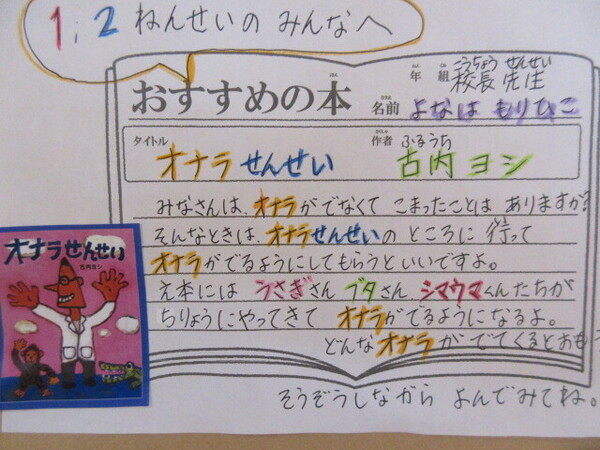 1,2 ねんせいの みんなへ
おすすめの本
年 組 校長先生
こうちょう せんせい
名前 よなは もりひこ
タイトル オナラせんせい
作者 古内ヨシ
ふるうち
みなさんは、オナラがでなくて こまったことは ありますか?
そんなときは、オナラせんせいの ところに 行って
オナラがでるようにしてもらうといいですよ。
え本には うさぎさん ブタさん、シマウマくんたちが
ちりょうにやってきて オナラがでるようになるよ。
どんなオナラが でてくるとおもう
そうぞうしながら よんでみてね。
オナラせんせい
古内ヨシ